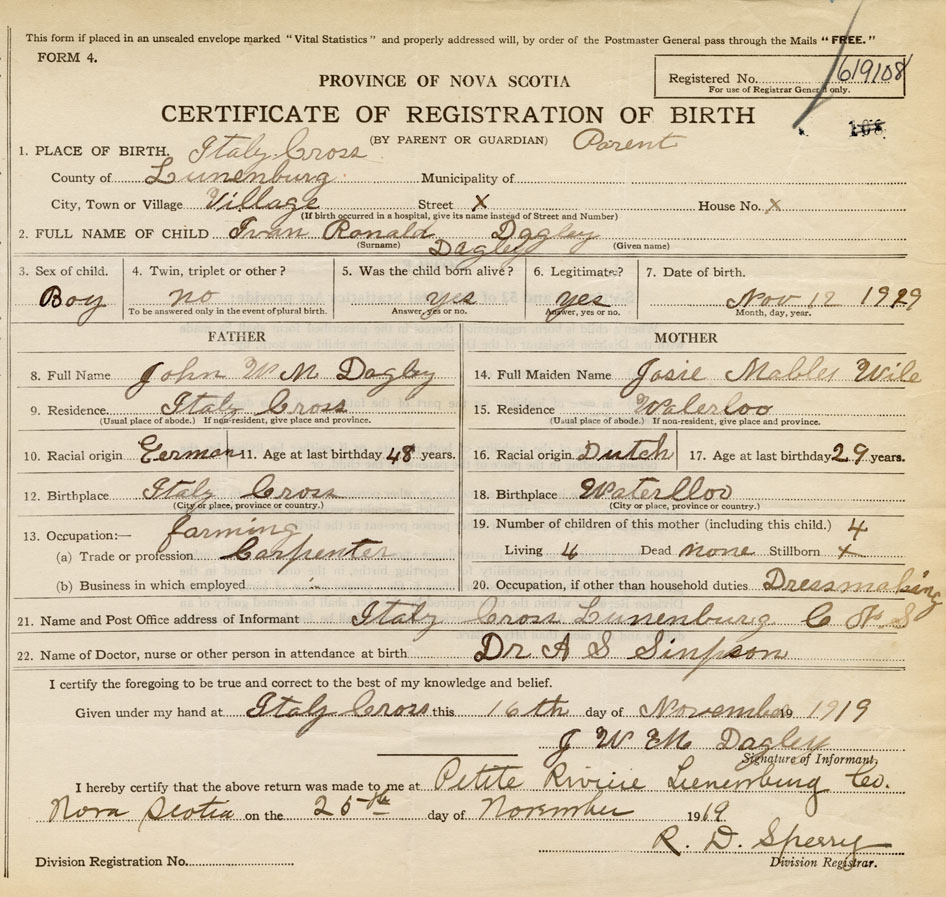 This form if placed in an unsealed envelope marked "Vital Statistics" and properly addressed will, by order of the Postmaster General pass through the Mails "FREE."
FORM 4.
PROVINCE OF NOVA SCOTIA
Registered No. 619108
For use of Registrar General only.
CERTIFICATE OF REGISTRATION OF BIRTH
108
(BY PARENT OR GUARDIAN) Parent
1. PLACE OF BIRTH. Italy Cross
County of Lunenburg Municipality of
City, Town or Village Village Street X House No. X
(If birth occurred in a hospital, give its name instead of Street and Number)
2. FULL NAME OF CHILD Ivan Ronald Dagley
(Surname) Dagley (Given name)
3. Sex of child. 4. Twin, triplet or other? 5. Was the child born alive? 6. Legitimate? 7. Date of birth.
Boy no yes yes Nov 12 1919
To be answered only in the event of plural birth. Answer, yes or no. Answer, yes or no. Month, day, year.
FATHER MOTHER
8. Full Name John W M Dagley 14. Full Maiden Name Josie Mables Wile
9. Residence Italy Cross 15. Residence Waterloo
(Usual place of abode.) If non-resident, give place and province. (Usual place of abode.) If non-resident, give place and province.
10. Racial origin German 11. Age at last birthday 48 years. 16. Racial origin Dutch 17. Age at last birthday 29 years.
12. Birthplace Italy Cross 18. Birthplace Waterlloo
(City or place, province or country.) (City or place, province or country.)
13. Occupation:— farming 19. Number of children of this mother (including this child.) 4
(a) Trade or profession Carpenter Living 4 Dead none Stillborn X
(b) Business in which employed 20. Occupation, if other than household duties Dressmaking
21. Name and Post Office address of Informant Italy Cross Lunenburg C N S
22. Name of Doctor, nurse or other person in attendance at birth Dr A S Sinpson
I certify the foregoing to be true and correct to the best of my knowledge and belief.
Given under my hand at Italy Cross this 16th day of November 19 1919
J W M Dagley
Signature of Informant,
I hereby certify that the above return was made to me at Petite Riviere Lunenburg Co.
Nova Scotia on the 25th day of November 1919
R. D. Sperry
Division Registration No. Division Registrar.